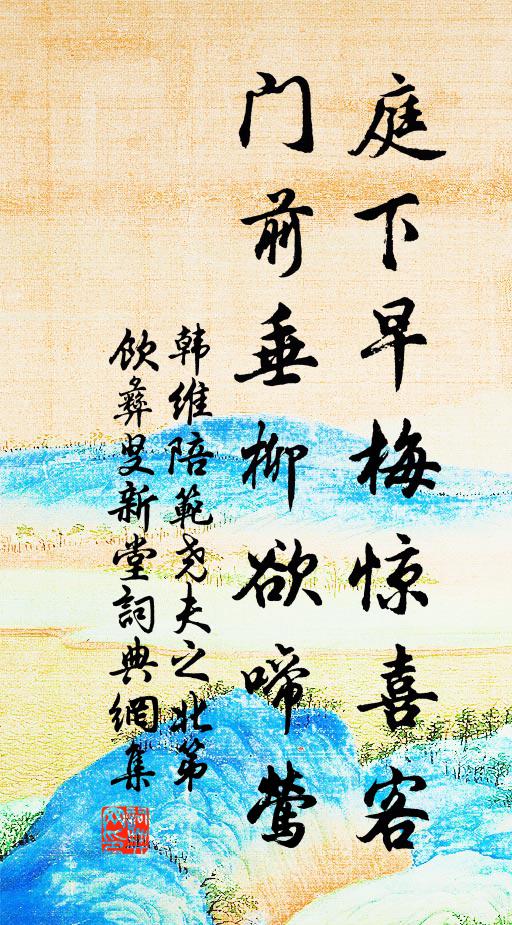 庭下早梅惊喜客
门前垂柳欲啼莺
韩维陪範尧夫之北第
饮彝叟新堂詞典網集